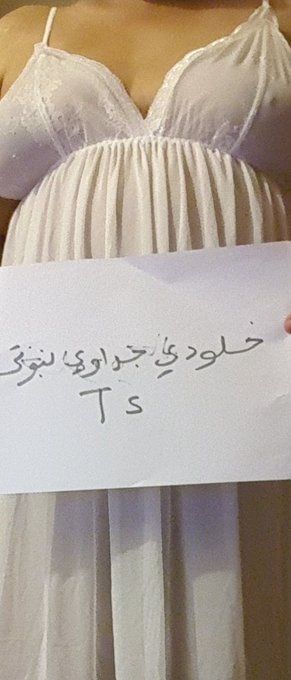 خلودي جداوي لبوتي
T s